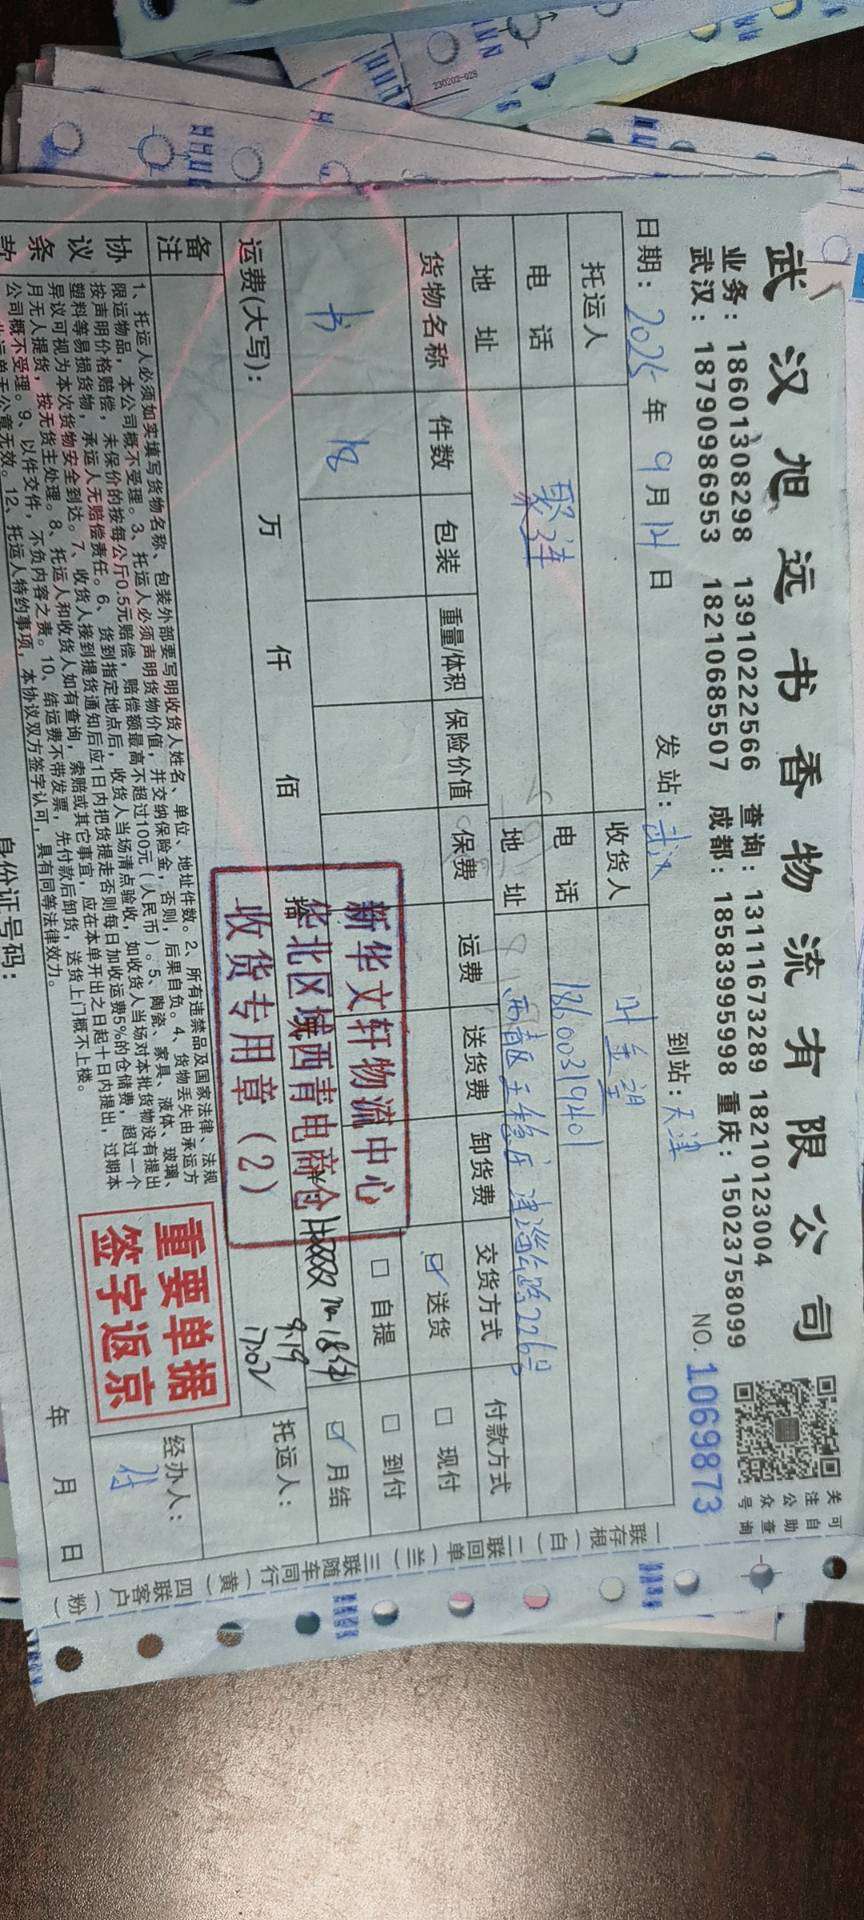 武汉旭远书香物流有限公司
业务：18601308298 13910222566 查询：13111673289 18210123004
武汉：18790986953 18210685507 成都：18583995998 重庆：15023758099
关注公众号
可自助查询
日期：2025年9月12日 发站：武汉 到站：天津 NO.1069873
托运人 收货人
电话 聚连 电话 18600319401
地址 地址 西青区 津淄公路226号
货物名称 件数 包装 重量/体积 保险价值 保费 运费 送货费 卸货费 交货方式 付款方式
书 18 ☑送货 □现付
□自提 □到付
☑月结
新华文轩物流中心
华北区域西青电商仓
收货专用章（2）
实收18件
9.19
17:02
运费(大写)： 万 仟 佰 拾 托运人：
备注
重要单据
签字返京
经办人：付
协议条款
1、托运人必须如实填写货物名称、包装外部要写明收货人姓名、单位、地址件数。2、所有违禁品及国家法律、法规
限运物品，本公司概不受理。3、托运人必须声明货物价值，并交纳保险金，否则，后果自负。4、货物丢失由承运方
按声明价格赔偿，未保价的按每公斤0.5元赔偿，赔偿额最高不超过100元（人民币）。5、陶瓷、家具、液体、玻璃、
塑料等易损货物，承运人无赔偿责任。6、货到指定地点后，收货人当场清点验收，如收货人当场对本批货物没有提出
异议可视为本次货物安全到达。7、收货人接到提货通知后应1日内把货提走否则每日加收运费5%的仓储费，超过一个
月无人提货，按无货主处理。8、托运人和收货人如有查询，索赔或其它事宜，应在本单开出之日起十日内提出，过期本
公司概不受理。9、以件交件，不负内容之责。10、结运费不带发票，先付款后卸货，送货上门概不上楼。
公章无效。12、托运人特约事项，本协议双方签字认可，具有同等法律效力。
身份证号码： 年 月 日
一联存根（白）二联回单（兰）三联随车同行（黄）四联客户（粉）
230202-029